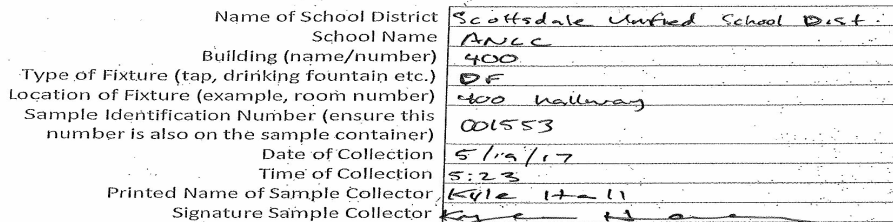 Name of School District Scottsdale Unified School Dist.
School Name ANLC
Building (name/number) 400
Type of Fixture (tap, drinking fountain etc.) DF
Location of Fixture (example, room number) 400 hallway
Sample Identification Number (ensure this
number is also on the sample container) 001553
Date of Collection 5/19/17
Time of Collection 5:23
Printed Name of Sample Collector Kyle Hall
Signature Sample Collector Kyle